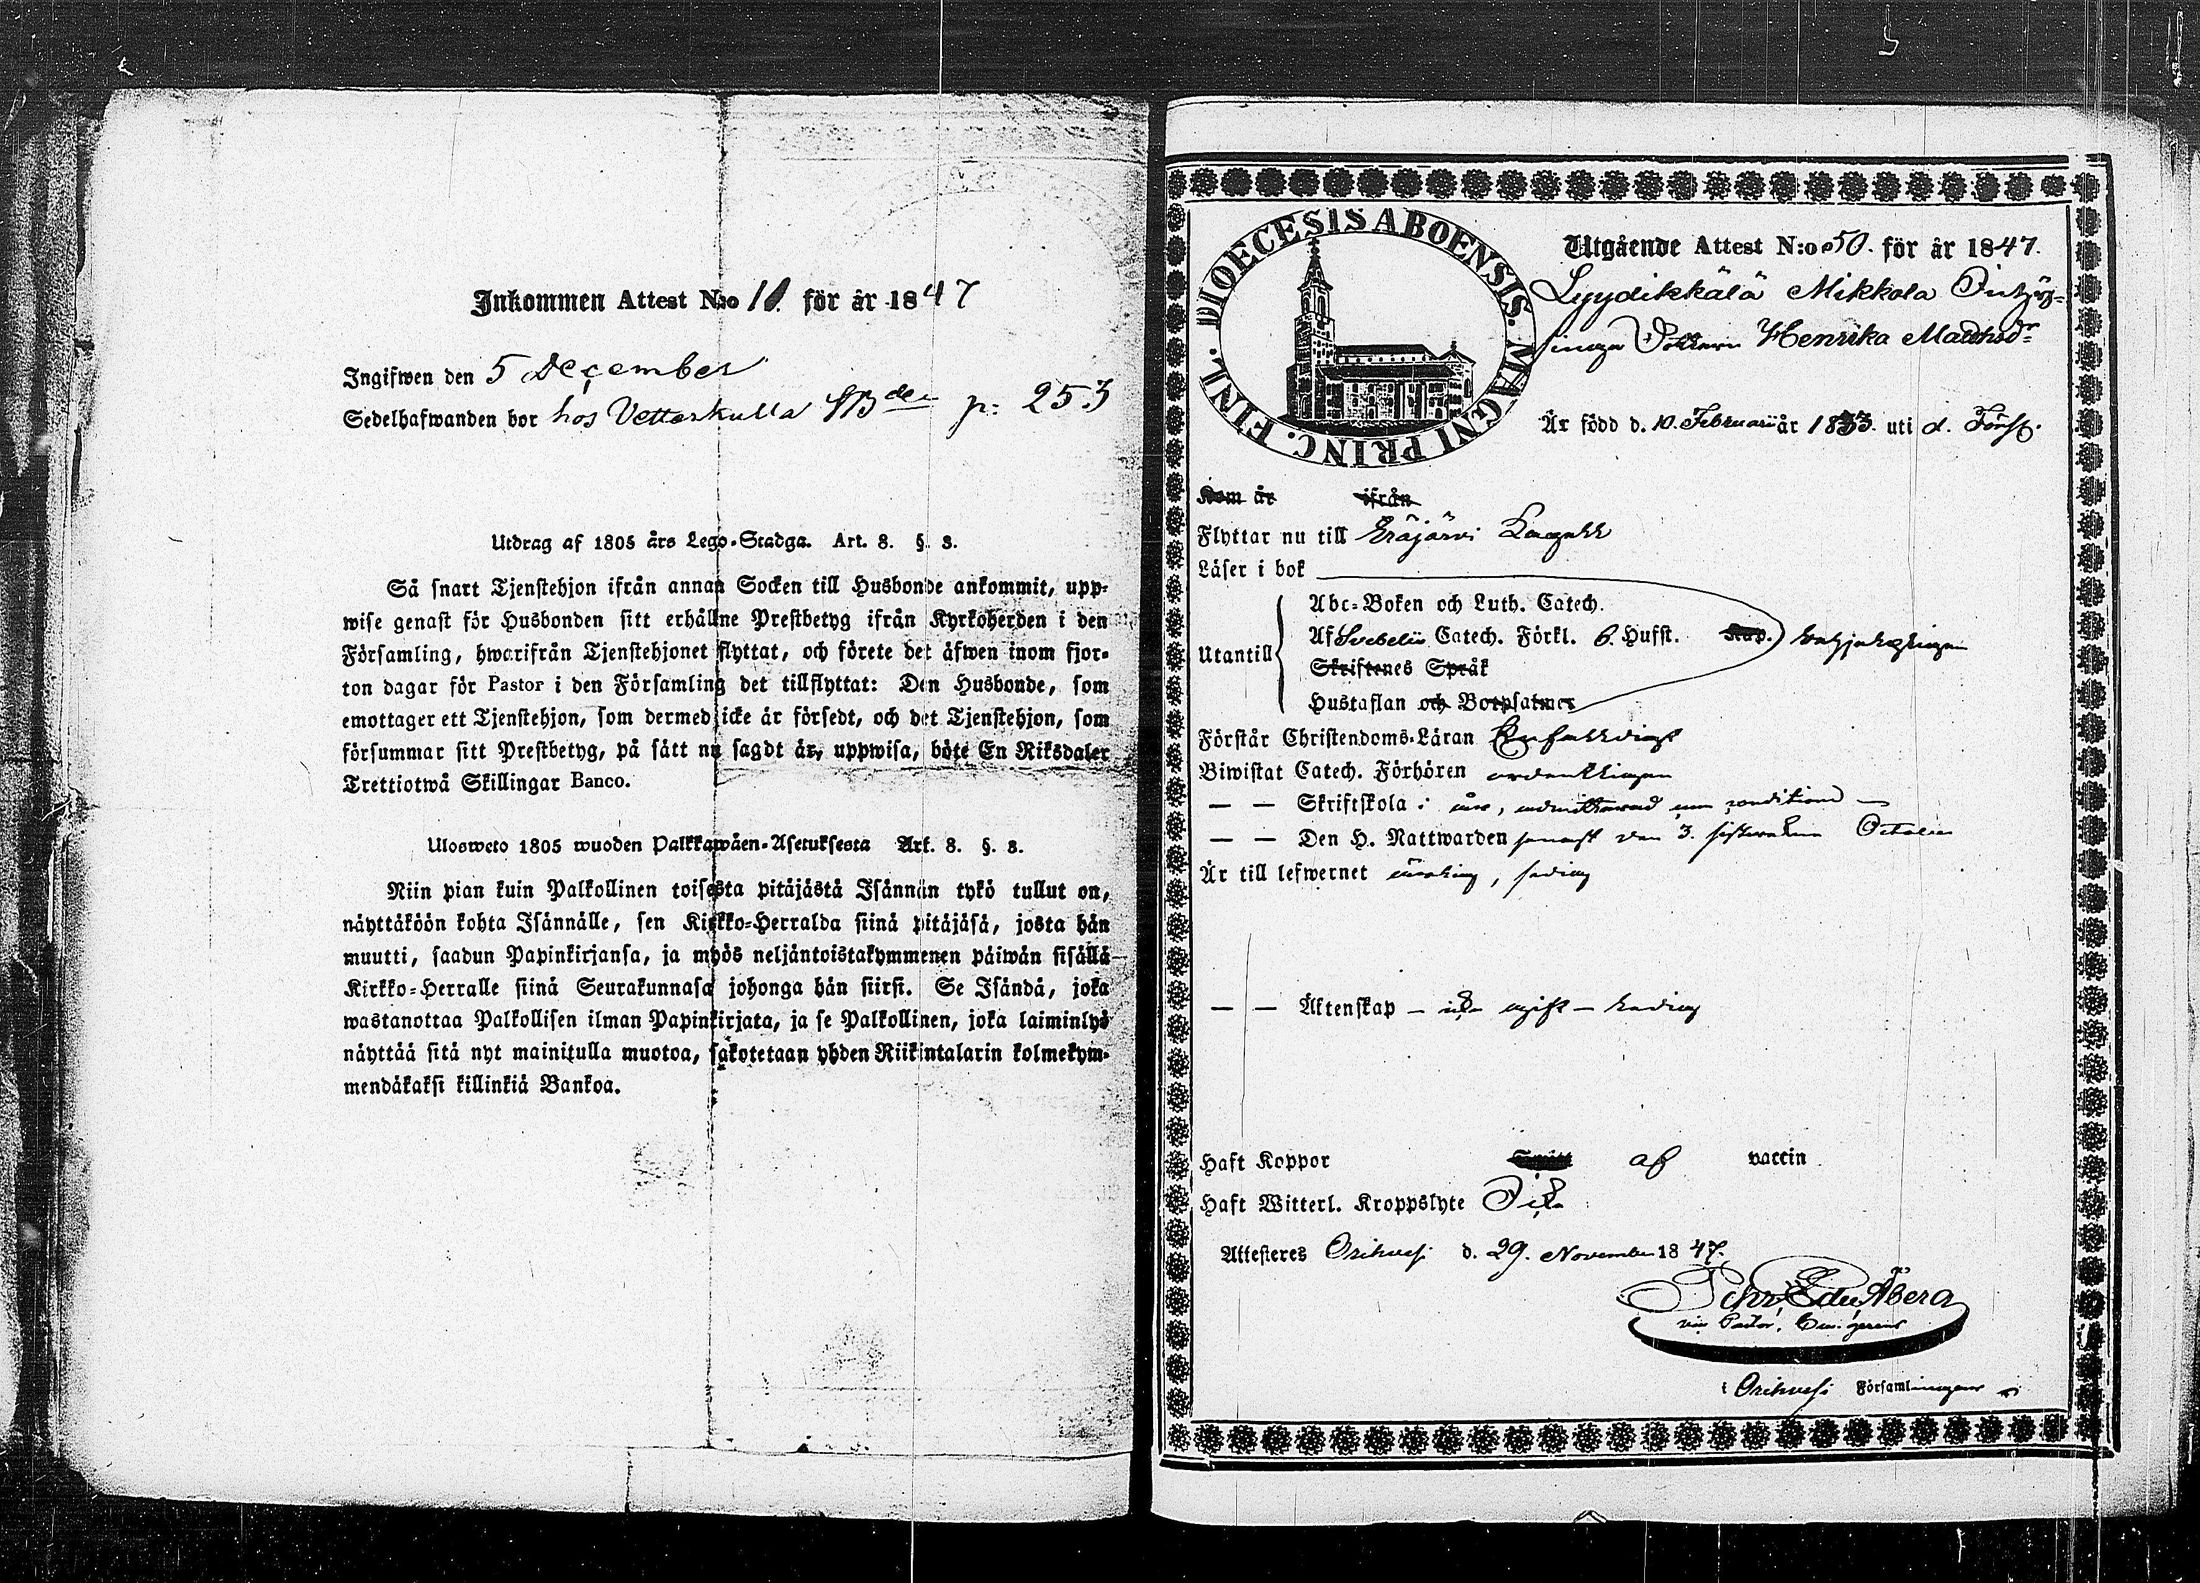 Inkommen Attest N:o 10. för år 1847
Ingifwen den 5 December
Sedelhafwanden bor hos Vettaskulla p: 253
Utdrag af 1805 års Lego-Stadga. Art. 8. §. 3.
Så snart Tjenstehjon ifrån annan Socken till Husbonde ankommit, upp-
wise genast för Husbonden sitt erhållne Prestbetyg ifrån Kyrkoherden i den
Församling, hwarifrån Tjenstehjonet flyttat, och förete det äfwen inom fjor-
ton dagar för Pastor i den Församling det tillflyttat: Den Husbonde, som
emottager ett Tjenstehjon, som dermed icke är försedt, och det Tjenstehjon, som
försummar sitt Prestbetyg, på sätt nu sagdt är, uppwisa, böte En Riksdaler
Trettiotwå Skillingar Banco.
Ulosweto 1805 wuoden Palkkawäen-Asetuksesta Art. 8. §. 3.
Niin pian kuin Palkollinen toisesta pitäjästä Isännän tykö tullut on,
näyttäköön kohta Isännälle, sen Kirkko-Herralda siinä pitäjäsä, josta hän
muutti, saadun Papinkirjansa, ja myös neljäntoistakymmenen päiwän sisällä
Kirkko-Herralle siinä Seurakunnasa johonga hän siirsi. Se Isändä, joka
wastanottaa Palkollisen ilman Papinkirjata, ja se Palkollinen, joka laiminlyö
näyttää sitä nyt mainitulla muotoa, sakotetaan yhden Riikintalarin kolmekym-
mendäkaksi killinkiä Bankoa.
DIOECESIS ABOENSIS. MAGNI PRINC. FINL.
Utgående Attest N:o 50. för år 1847.
Lyydikkälä Mikkola
Henrika Mattsdr
Är född d. 10. Februarii år 1833. uti d. Förs.
Kom år ifrån
Flyttar nu till Eräjärvi Capell
Läser i bok
Utantill
Abc-Boken och Luth. Catech.
Af Svebelii Catech. Förkl. 6. Hufst. Kap.
Skriftenes Språk
Hustaflan och Botpsalmer
Förstår Christendoms-Läran
Biwistat Catech. Förhören ordentligen
— — Skriftskola: admitterad
— — Den H. Nattwarden senast den 3. sistvikne October
Är till lefwernet ärlig, fredig
— — Äktenskap — ej gift — ledig
Haft Koppor af vaccin
Haft Witterl. Kroppslyte Icke
Attesteres Orihvesi d. 29. November 1847.
Pehr Edv. Åberg
vice Pastor,
i Orihvesi Församlingen